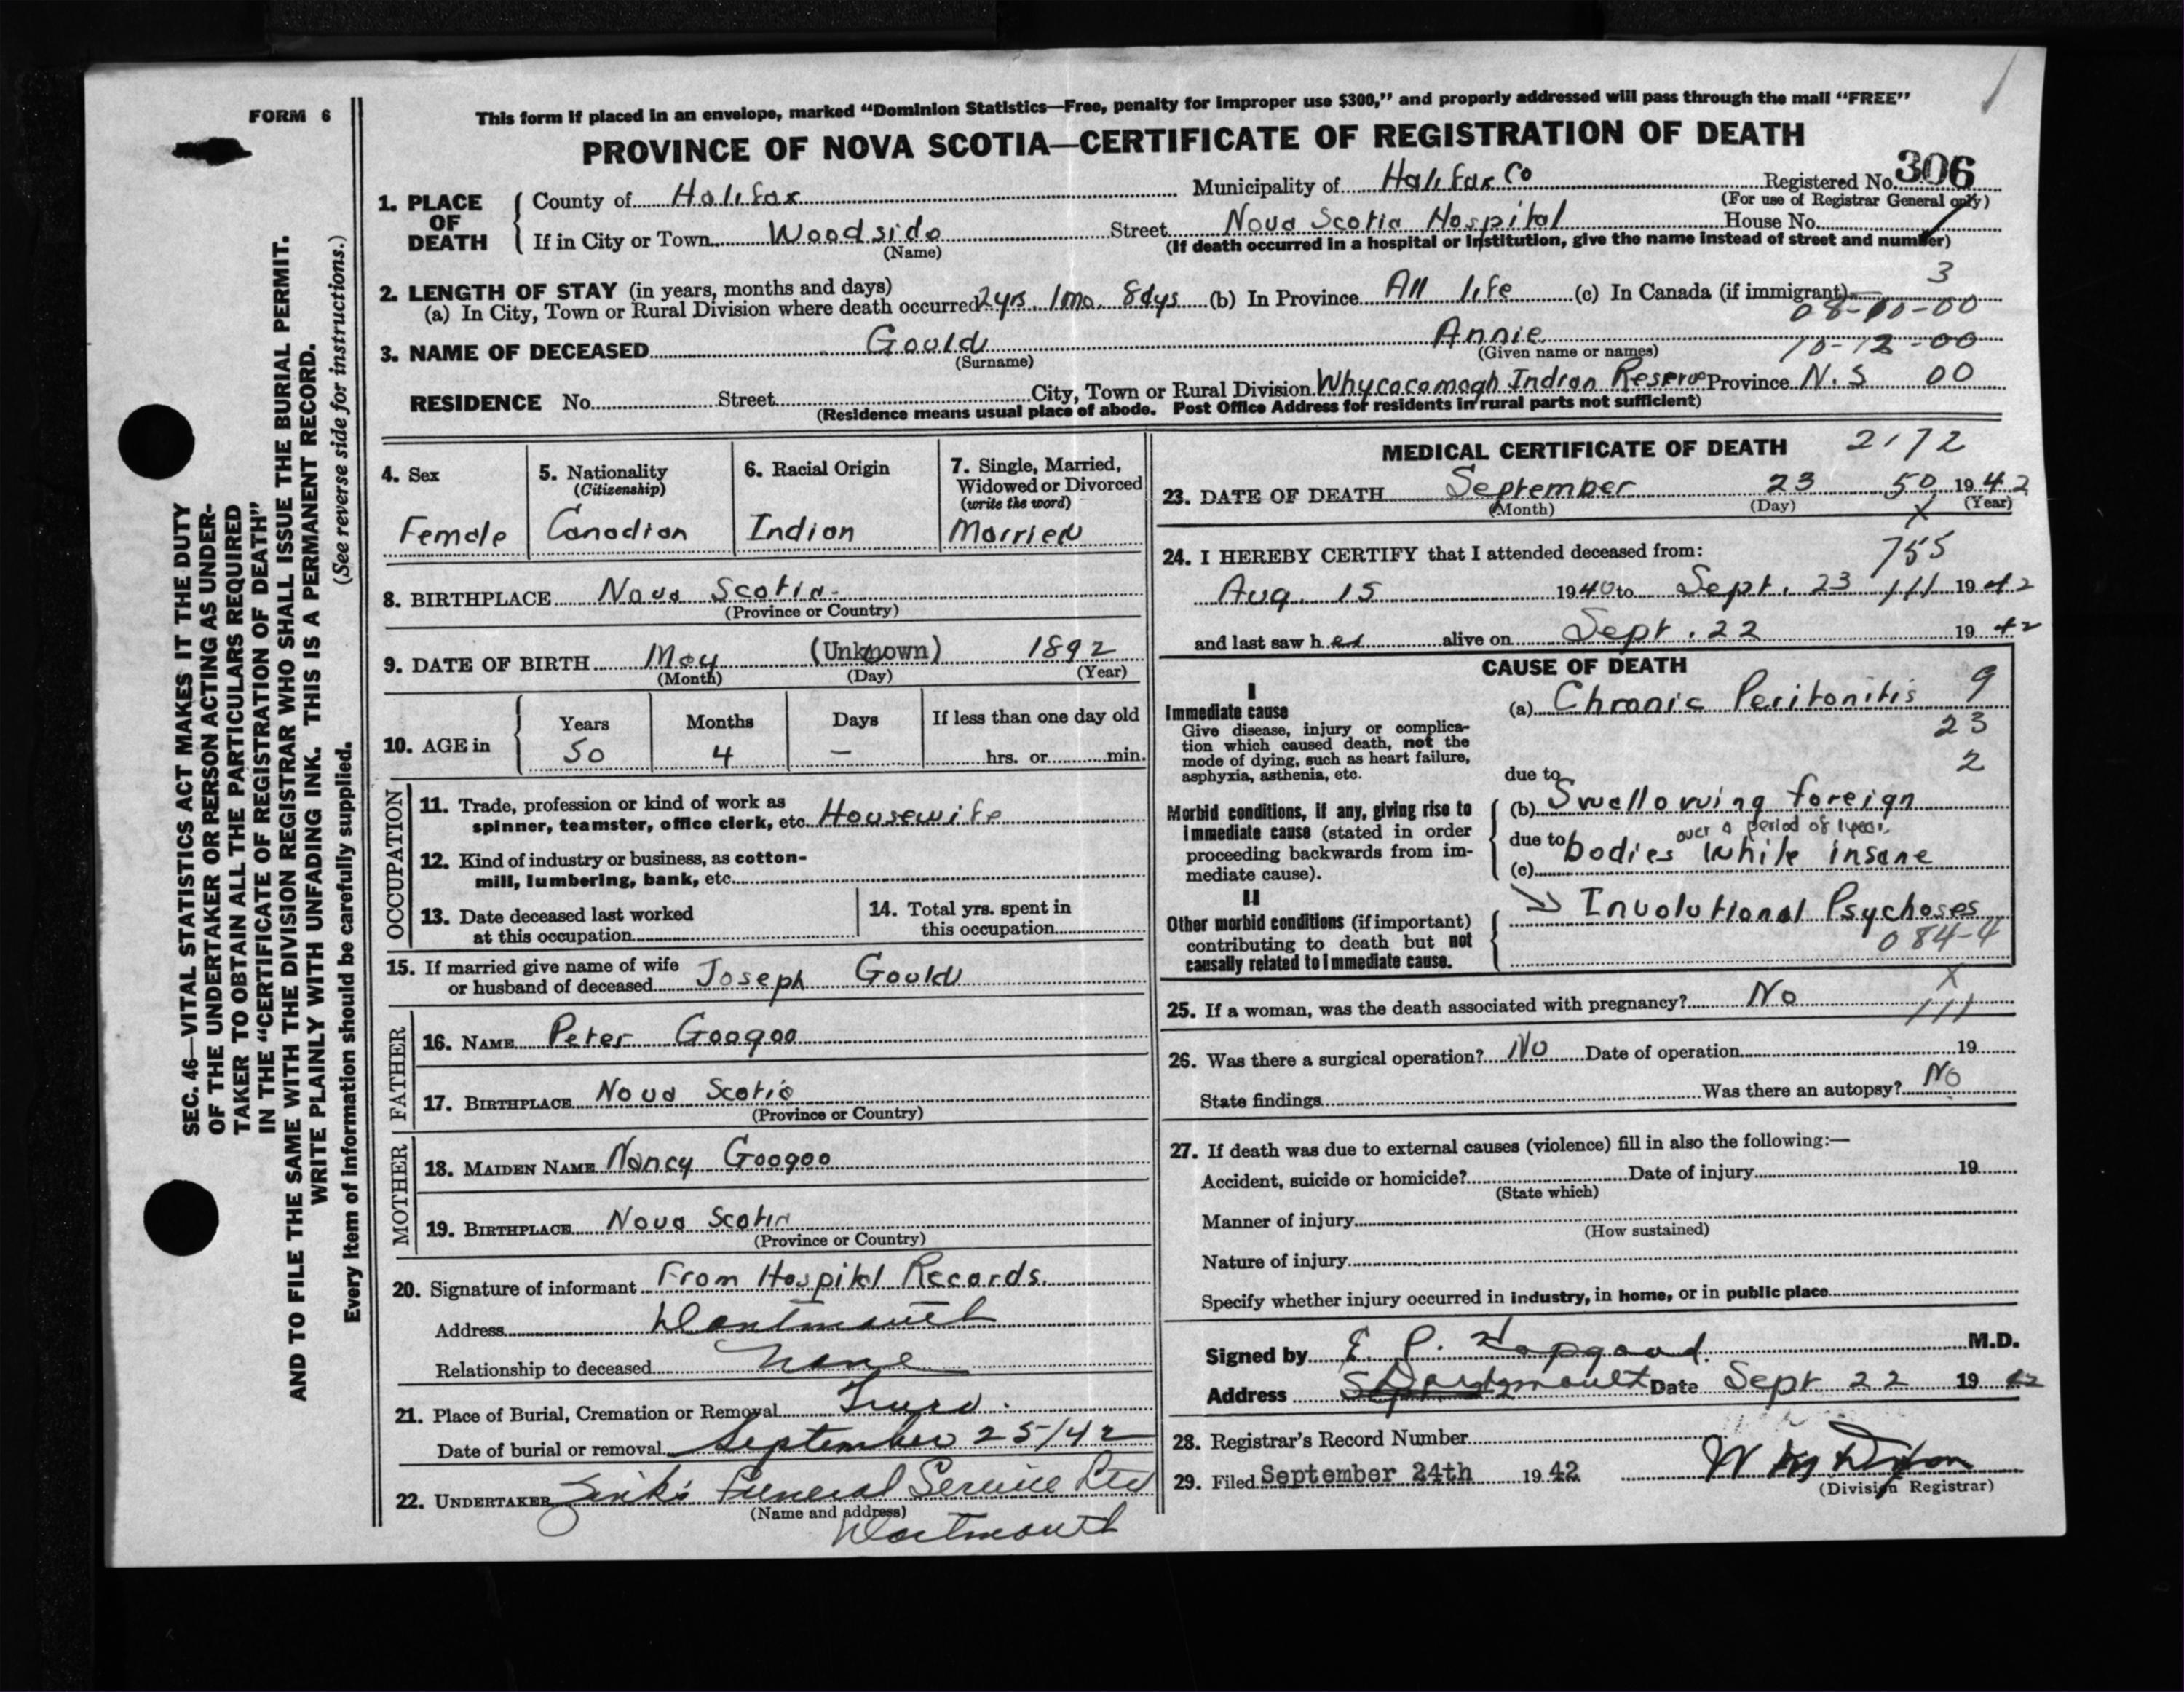 FORM 6
This form if placed in an envelope, marked "Dominion Statistics—Free, penalty for improper use $300," and properly addressed will pass through the mail "FREE"
PROVINCE OF NOVA SCOTIA—CERTIFICATE OF REGISTRATION OF DEATH
SEC. 46—VITAL STATISTICS ACT MAKES IT THE DUTY
OF THE UNDERTAKER OR PERSON ACTING AS UNDER-
TAKER TO OBTAIN ALL THE PARTICULARS REQUIRED
IN THE "CERTIFICATE OF REGISTRATION OF DEATH"
AND TO FILE THE SAME WITH THE DIVISION REGISTRAR WHO SHALL ISSUE THE BURIAL PERMIT.
WRITE PLAINLY WITH UNFADING INK. THIS IS A PERMANENT RECORD.
Every item of information should be carefully supplied. (See reverse side for instructions.)
1. PLACE OF DEATH
County of Halifax Municipality of Halifax Co Registered No. 306
(For use of Registrar General only)
If in City or Town Woodside Street Nova Scotia Hospital House No.
(Name) (If death occurred in a hospital or institution, give the name instead of street and number)
2. LENGTH OF STAY (in years, months and days) 3
(a) In City, Town or Rural Division where death occurred 2 yrs. 1 mo. 8 dys (b) In Province All life (c) In Canada (if immigrant) —
08-00-00
3. NAME OF DECEASED Gould Annie
(Surname) (Given name or names) 10-12-00
RESIDENCE No. Street City, Town or Rural Division Whycocomagh Indian Reserve Province N.S 00
(Residence means usual place of abode. Post Office Address for residents in rural parts not sufficient)
4. Sex
Female
5. Nationality
(Citizenship)
Canadian
6. Racial Origin
Indian
7. Single, Married,
Widowed or Divorced
(write the word)
Married
8. BIRTHPLACE Nova Scotia
(Province or Country)
9. DATE OF BIRTH May (Unknown) 1892
(Month) (Day) (Year)
10. AGE in Years Months Days If less than one day old
50 4 — hrs. or min.
OCCUPATION
11. Trade, profession or kind of work as
spinner, teamster, office clerk, etc. Housewife
12. Kind of industry or business, as cotton-
mill, lumbering, bank, etc.
13. Date deceased last worked
at this occupation
14. Total yrs. spent in
this occupation
15. If married give name of wife
or husband of deceased Joseph Gould
FATHER
16. NAME Peter Googoo
17. BIRTHPLACE Nova Scotia
(Province or Country)
MOTHER
18. MAIDEN NAME Nancy Googoo
19. BIRTHPLACE Nova Scotia
(Province or Country)
20. Signature of informant From Hospital Records
Address Dartmouth
Relationship to deceased None
21. Place of Burial, Cremation or Removal Truro.
Date of burial or removal September 25/42
22. UNDERTAKER Zink's Funeral Service Ltd
(Name and address)
Dartmouth
MEDICAL CERTIFICATE OF DEATH 2172
23. DATE OF DEATH September 23 50 1942
(Month) (Day) (Year)
X
24. I HEREBY CERTIFY that I attended deceased from: 755
Aug. 15 1940 to Sept. 23 111 1942
and last saw her alive on Sept. 22 1942
CAUSE OF DEATH
I
Immediate cause
Give disease, injury or complica-
tion which caused death, not the
mode of dying, such as heart failure,
asphyxia, asthenia, etc.
(a) Chronic Peritonitis 9
23
2
due to
Morbid conditions, if any, giving rise to
immediate cause (stated in order
proceeding backwards from im-
mediate cause).
(b) Swallowing foreign
over a period of 1 year.
due to bodies while insane
(c)
II
Other morbid conditions (if important)
contributing to death but not
causally related to immediate cause.
Involutional Psychoses
084-4
X
25. If a woman, was the death associated with pregnancy? No
111
26. Was there a surgical operation? No Date of operation 19
State findings Was there an autopsy? No
27. If death was due to external causes (violence) fill in also the following:—
Accident, suicide or homicide? Date of injury 19
(State which)
Manner of injury
(How sustained)
Nature of injury
Specify whether injury occurred in industry, in home, or in public place
Signed by E. P. Hapgood. M.D.
Address Dartmouth Date Sept 22 1942
28. Registrar's Record Number
29. Filed September 24th 1942
(Division Registrar)